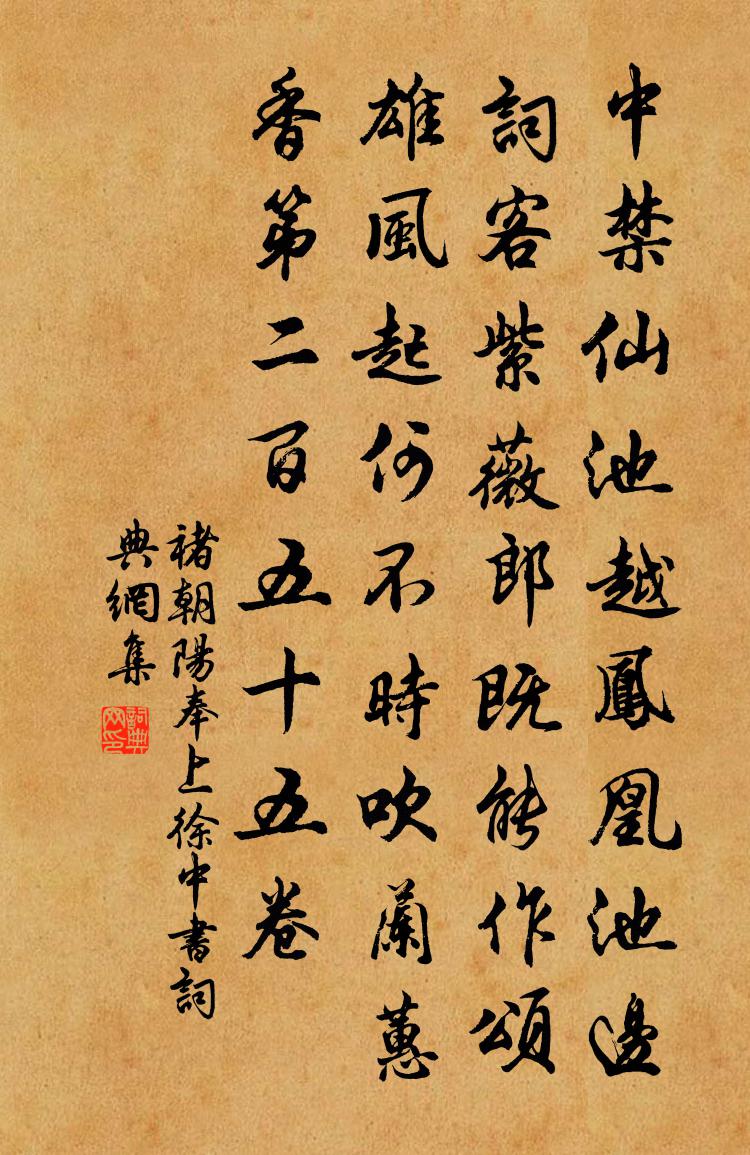 中禁仙池越鳳凰池邊
詞客紫薇郎既能作頌
雄風起何不時吹蘭蕙
香第二百五十五卷
褚朝陽奉上徐中書詞
典網集
詞典
网印